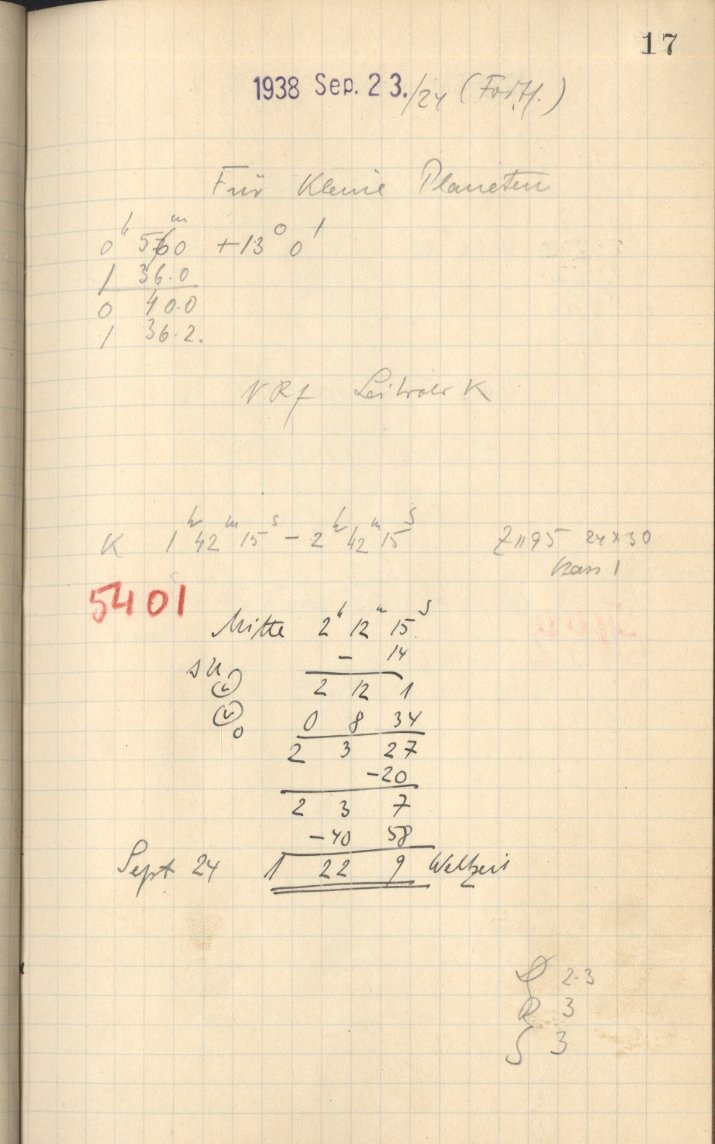 17
1938 Sep. 23./24 (Forts.)
Für Kleine Planeten
0ʰ 56ᵐ0 +13° 0'
1 36.0
0 40.0
1 36.2.
K 1ʰ 42ᵐ 15ˢ – 2ʰ 42ᵐ 15ˢ 24×30
5401
Mitte 2ʰ 12ᵐ 15ˢ
– 14
2 12 1
0 8 34
2 3 27
-20
2 3 7
-40 58
Sept 24 1 22 9 Weltzeit
2.3
3
S 3